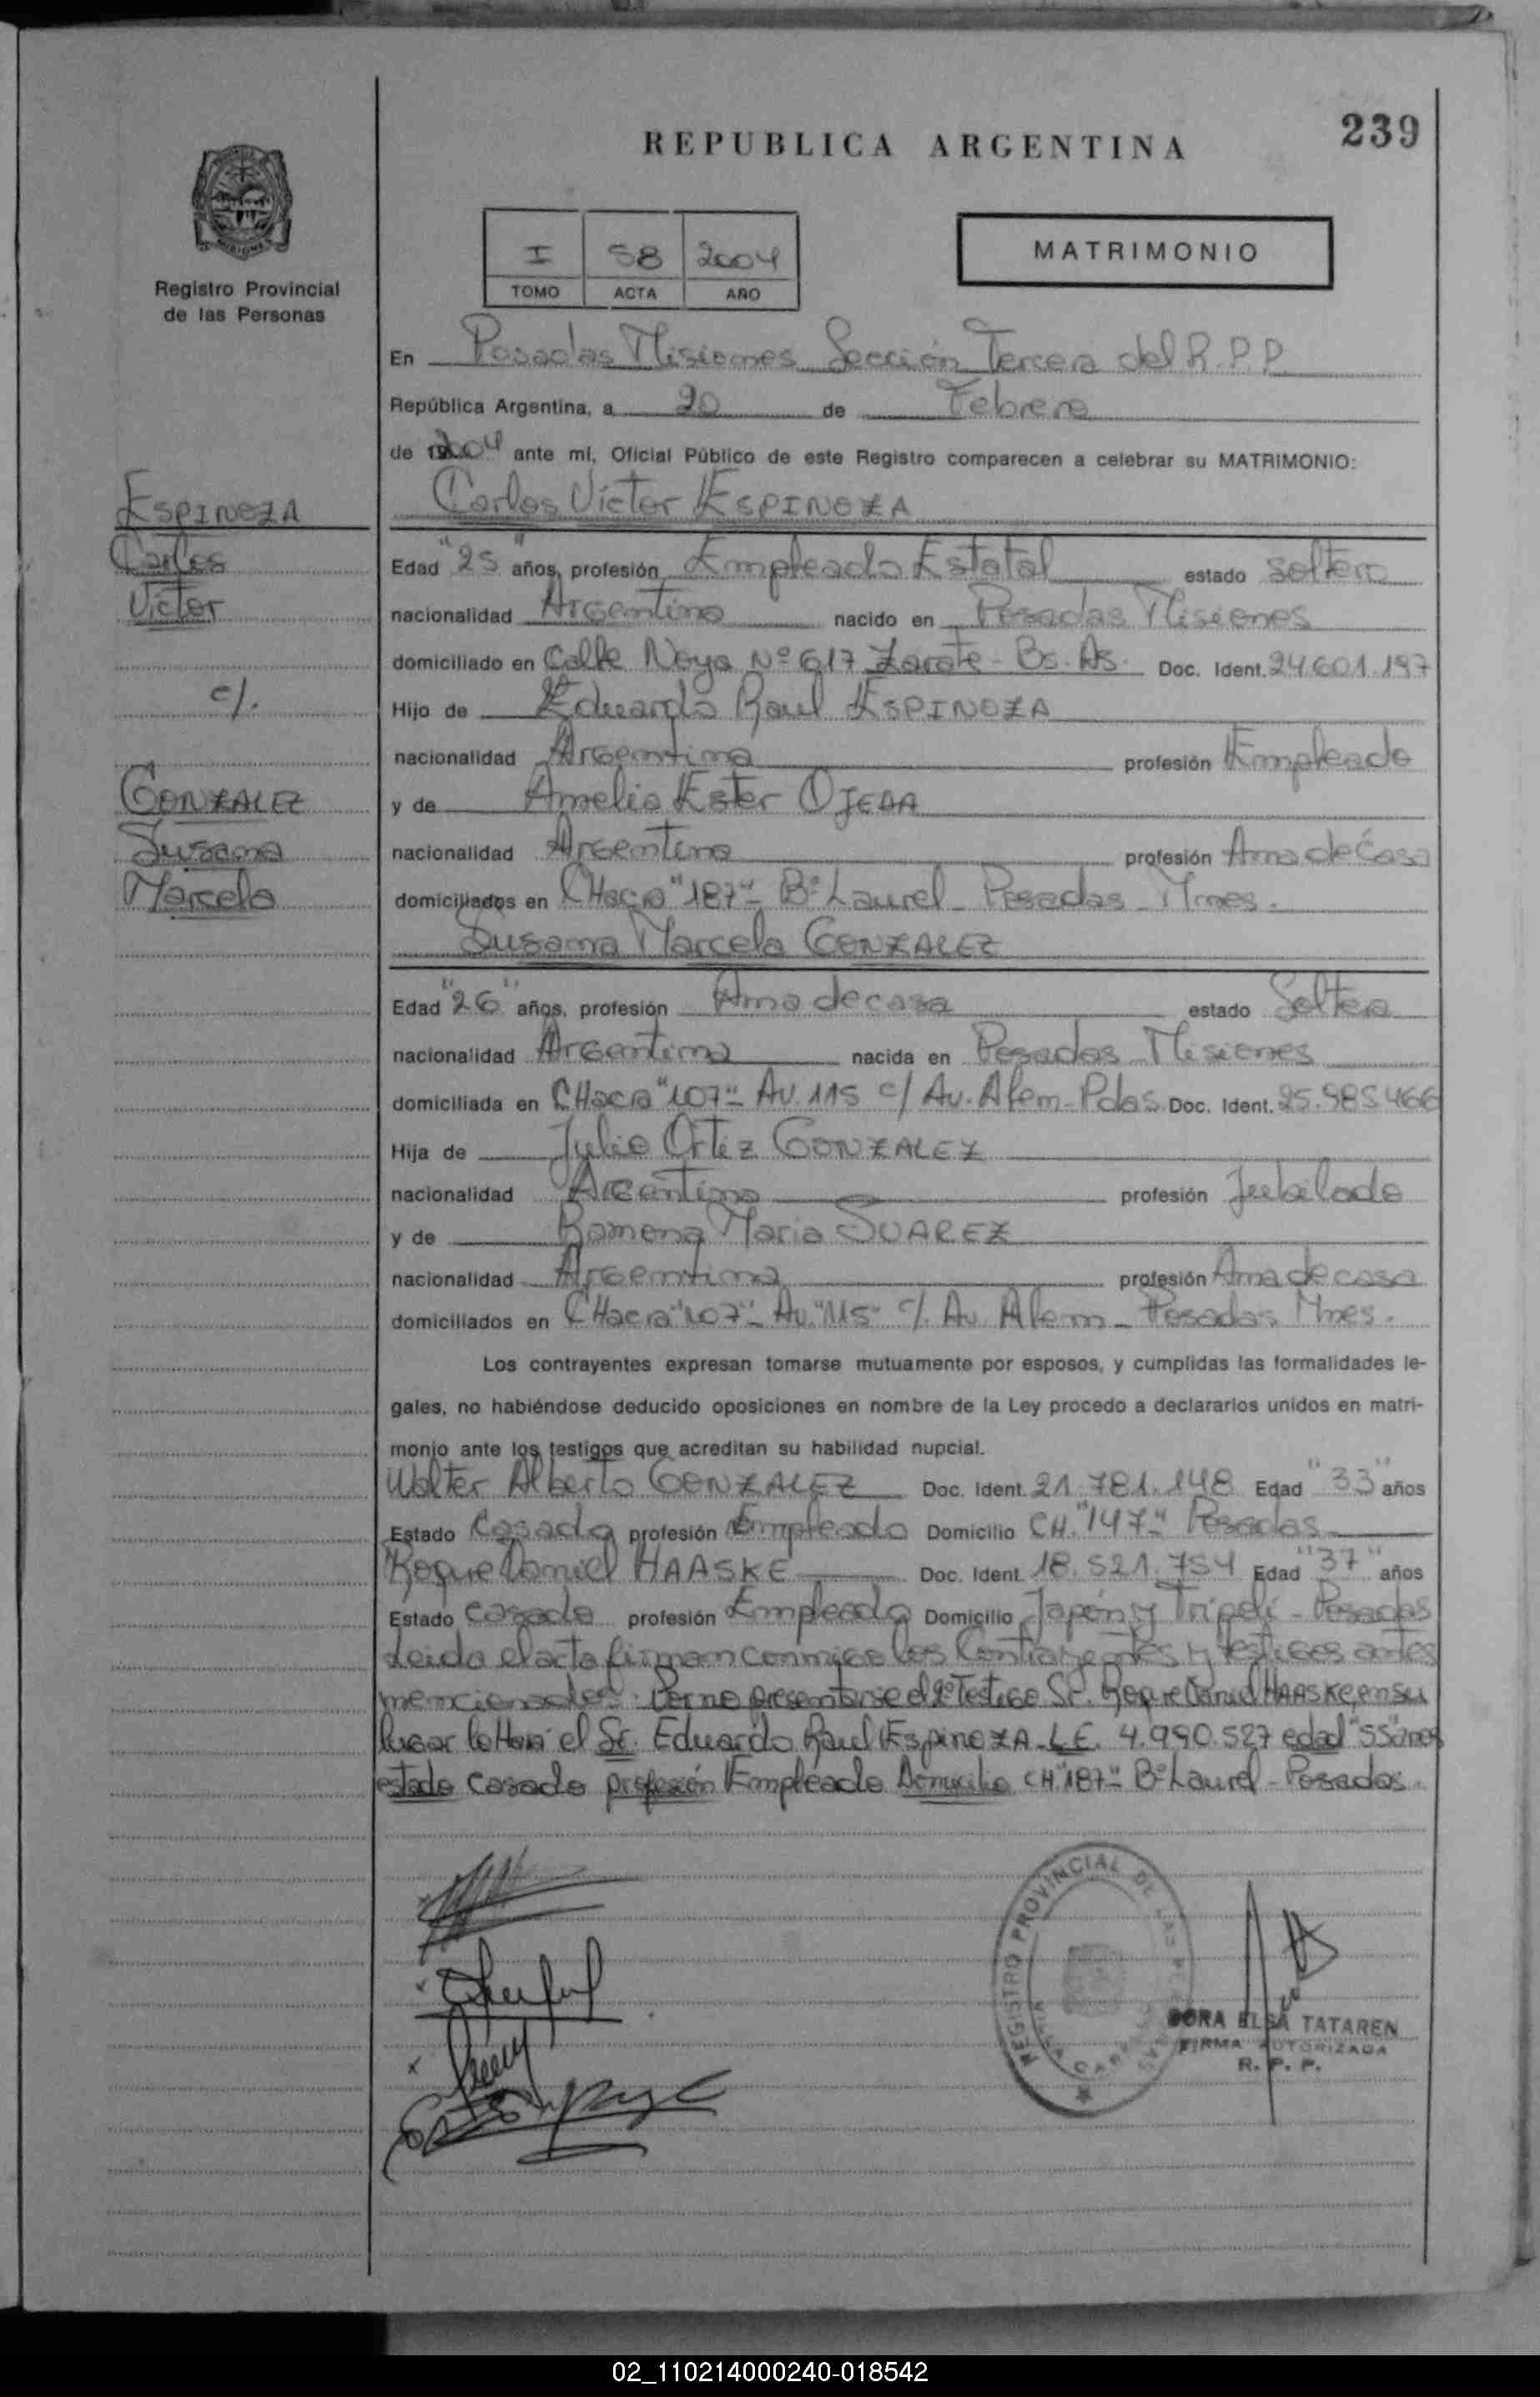 239
REPUBLICA ARGENTINA
I 58 2004
TOMO ACTA AÑO
MATRIMONIO
Registro Provincial
de las Personas
En Posadas Misiones Sección Tercera del R.P.P.
República Argentina, a 20 de Febrero
de 2004 ante mí, Oficial Público de este Registro comparecen a celebrar su MATRIMONIO:
Carlos Víctor ESPINOZA
ESPINOZA
Carlos
Víctor
c/.
GONZALEZ
Susana
Marcela
Edad "25" años, profesión Empleado Estatal estado soltero
nacionalidad Argentina nacido en Posadas Misiones
domiciliado en Calle Noya Nº 617 Zarate - Bs. As. Doc. Ident. 24.601.197
Hijo de Eduardo Raul ESPINOZA
nacionalidad Argentina profesión Empleado
y de Amelia Ester OJEDA
nacionalidad Argentina profesión Ama de Casa
domiciliados en CHacra "187" - Bº Laurel - Posadas - Mnes.
Susana Marcela GONZALEZ
Edad "26" años, profesión Ama de casa estado Soltera
nacionalidad Argentina nacida en Posadas Misiones
domiciliada en CHacra "107" - Av. 115 c/ Av. Alem - Pdas. Doc. Ident. 25.985466
Hija de Julio Ortiz GONZALEZ
nacionalidad Argentina profesión Jubilado
y de Ramona Maria SUAREZ
nacionalidad Argentina profesión Ama de casa
domiciliados en CHacra "107" - Av. "115" c/. Av. Alem - Posadas Mnes.
Los contrayentes expresan tomarse mutuamente por esposos, y cumplidas las formalidades le-
gales, no habiéndose deducido oposiciones en nombre de la Ley procedo a declararlos unidos en matri-
monio ante los testigos que acreditan su habilidad nupcial.
Walter Alberto GONZALEZ Doc. Ident. 21.781.148 Edad "33" años
Estado Casado profesión Empleado Domicilio CH. "147" Posadas
Roque Daniel HAASKE Doc. Ident. 18.521.754 Edad "37" años
Estado casado profesión Empleado Domicilio Japón y Tripoli - Posadas
Leida el acta firman conmigo los Contrayentes y testigos antes
mencionados. Por no presentarse el 2º Testigo Sr. Roque Daniel HAASKE, en su
lugar lo Hará el Sr. Eduardo Raul ESPINOZA - L.E. 4.990.527 edad "55" años
estado casado profesión Empleado Domicilio CH "187" - Bº Laurel - Posadas.
REGISTRO PROVINCIAL DE LAS PERSONAS
DORA ELSA TATAREN
FIRMA AUTORIZADA
R. P. P.
02_110214000240-018542